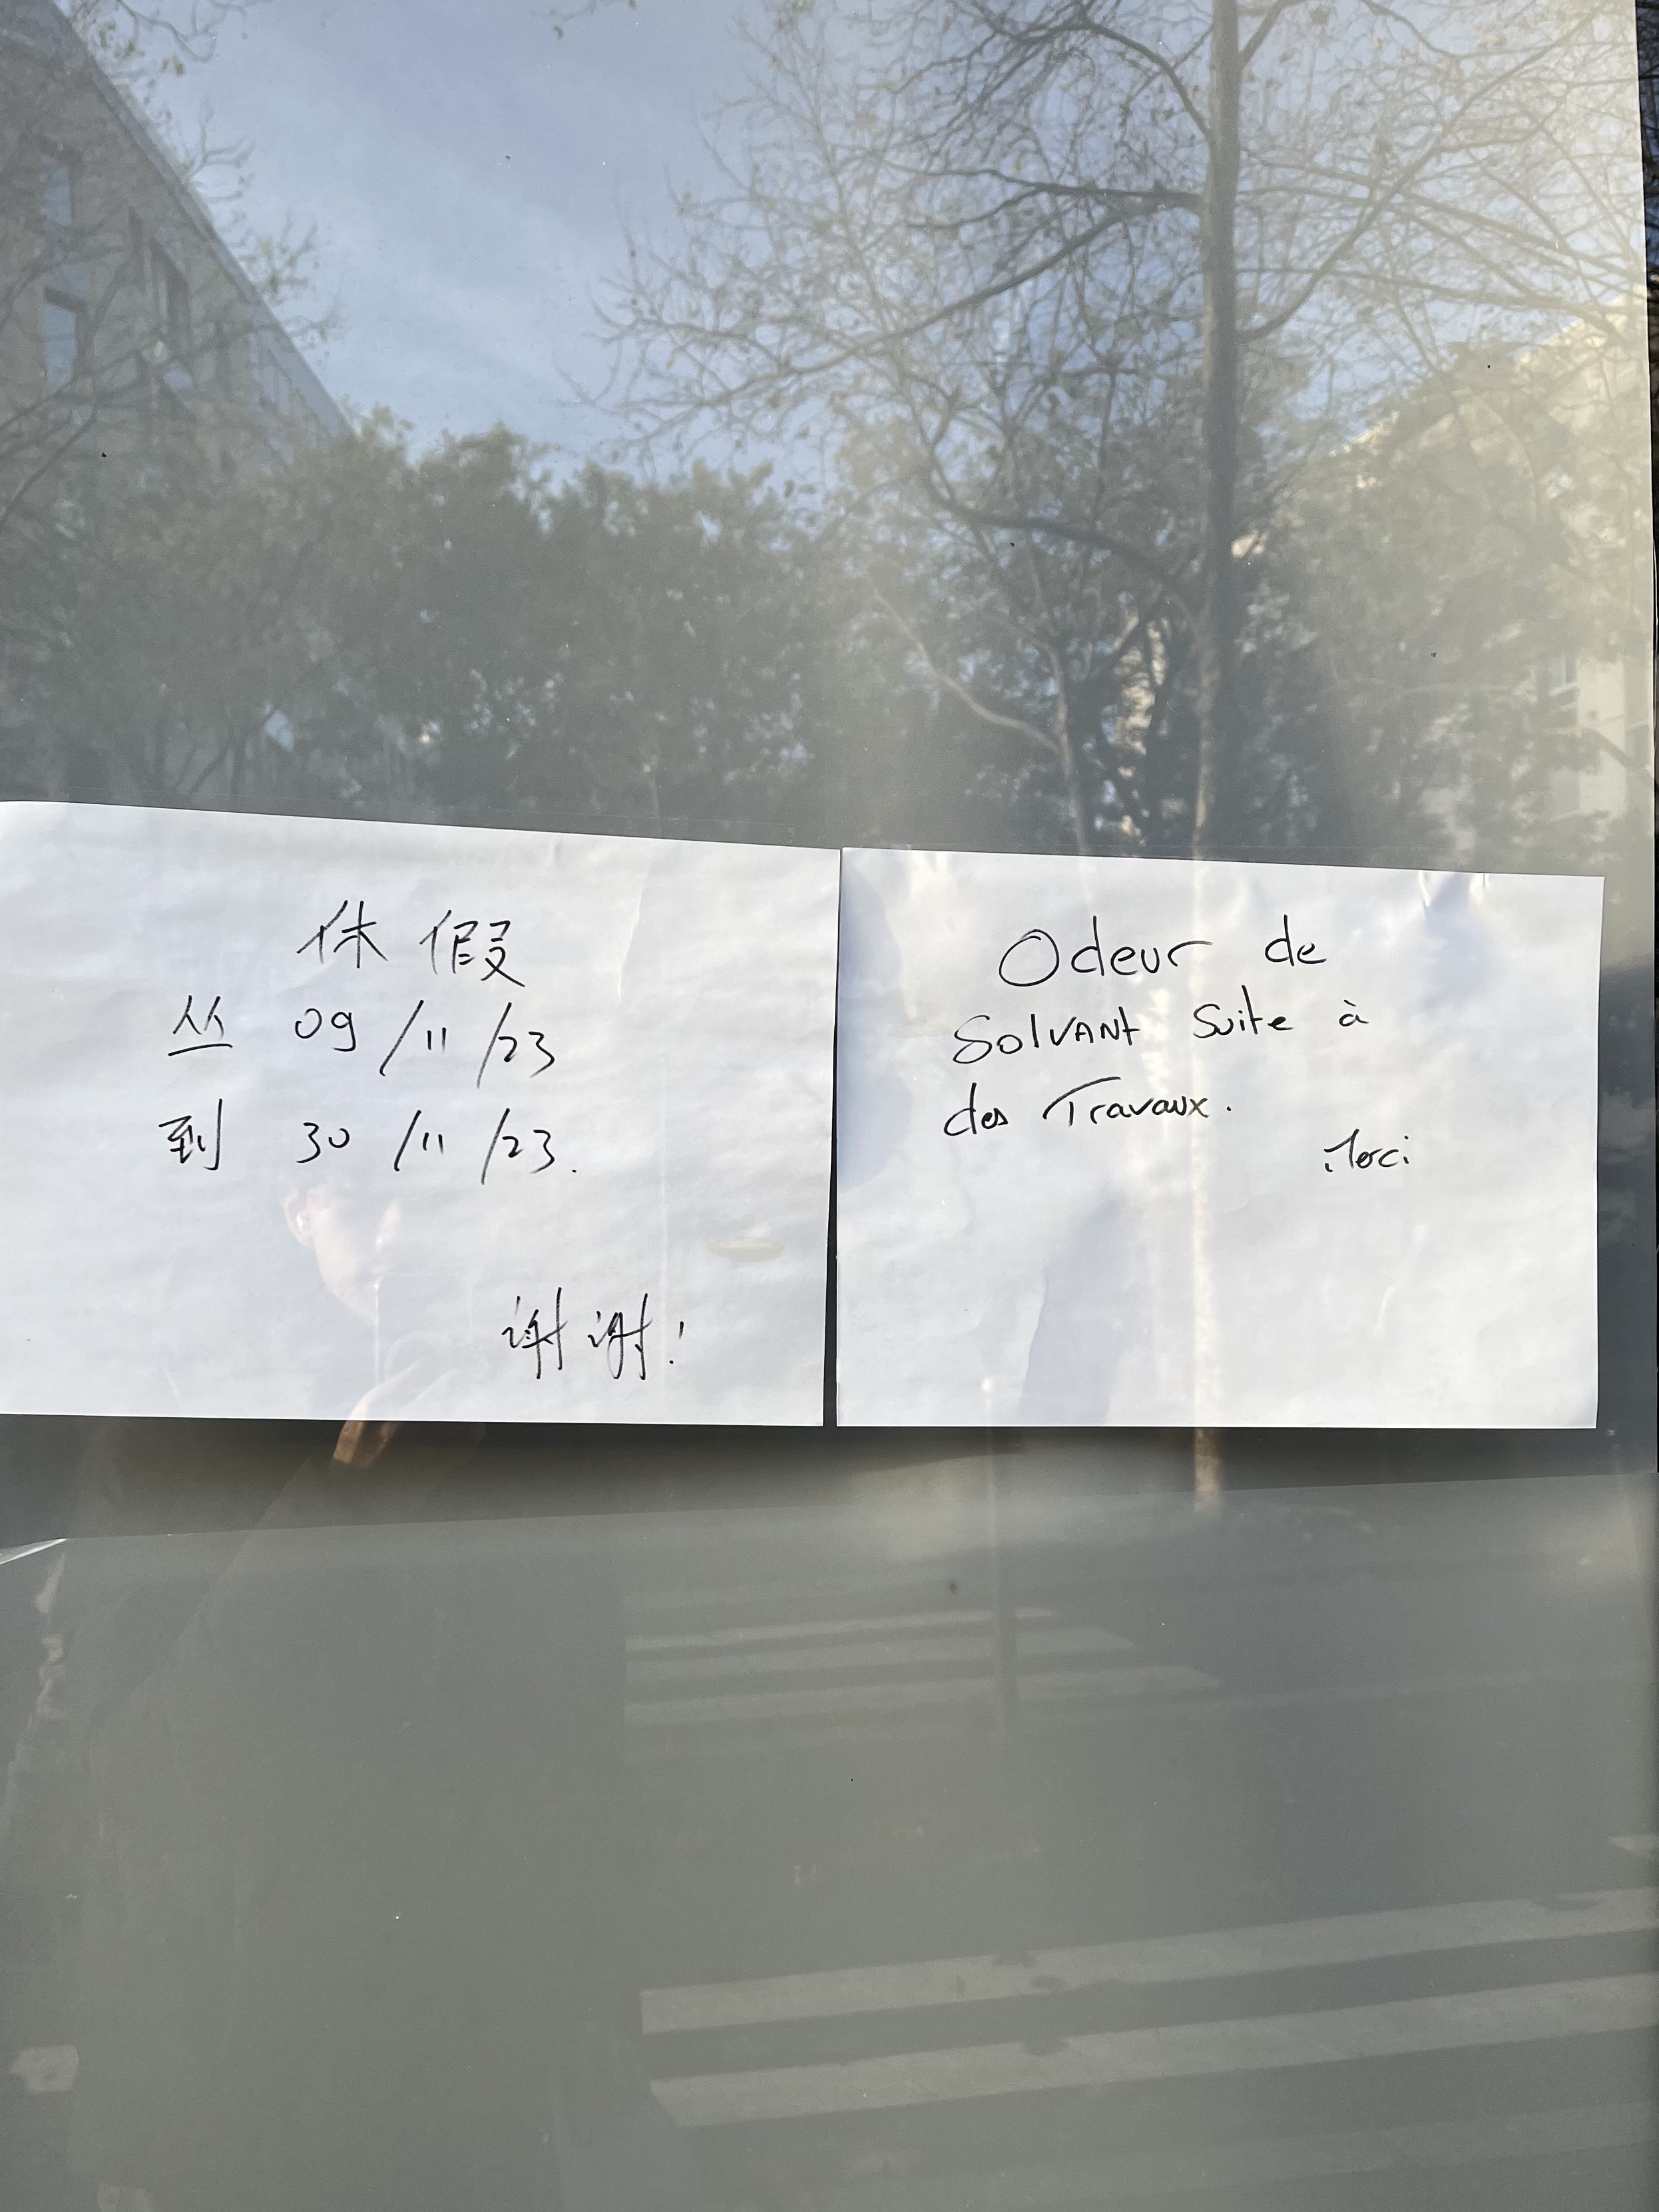 休假
丛 09/11/23
到 30/11/23.
谢谢!
Odeur de
SOlVANt Suite à
des Travaux.
Merci